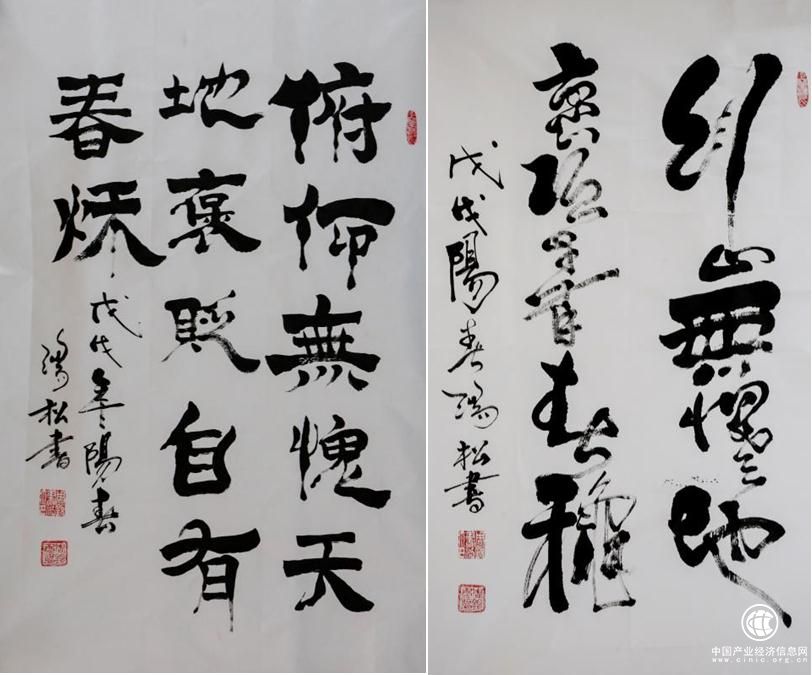 俯仰無愧天
地褒貶自有
春秌
戊戌年陽春
瑞松書
俯仰無愧天地
褒貶自有春穐
戊戌陽春瑞松書
中国产业经济信息网
www.cinic.org.cn